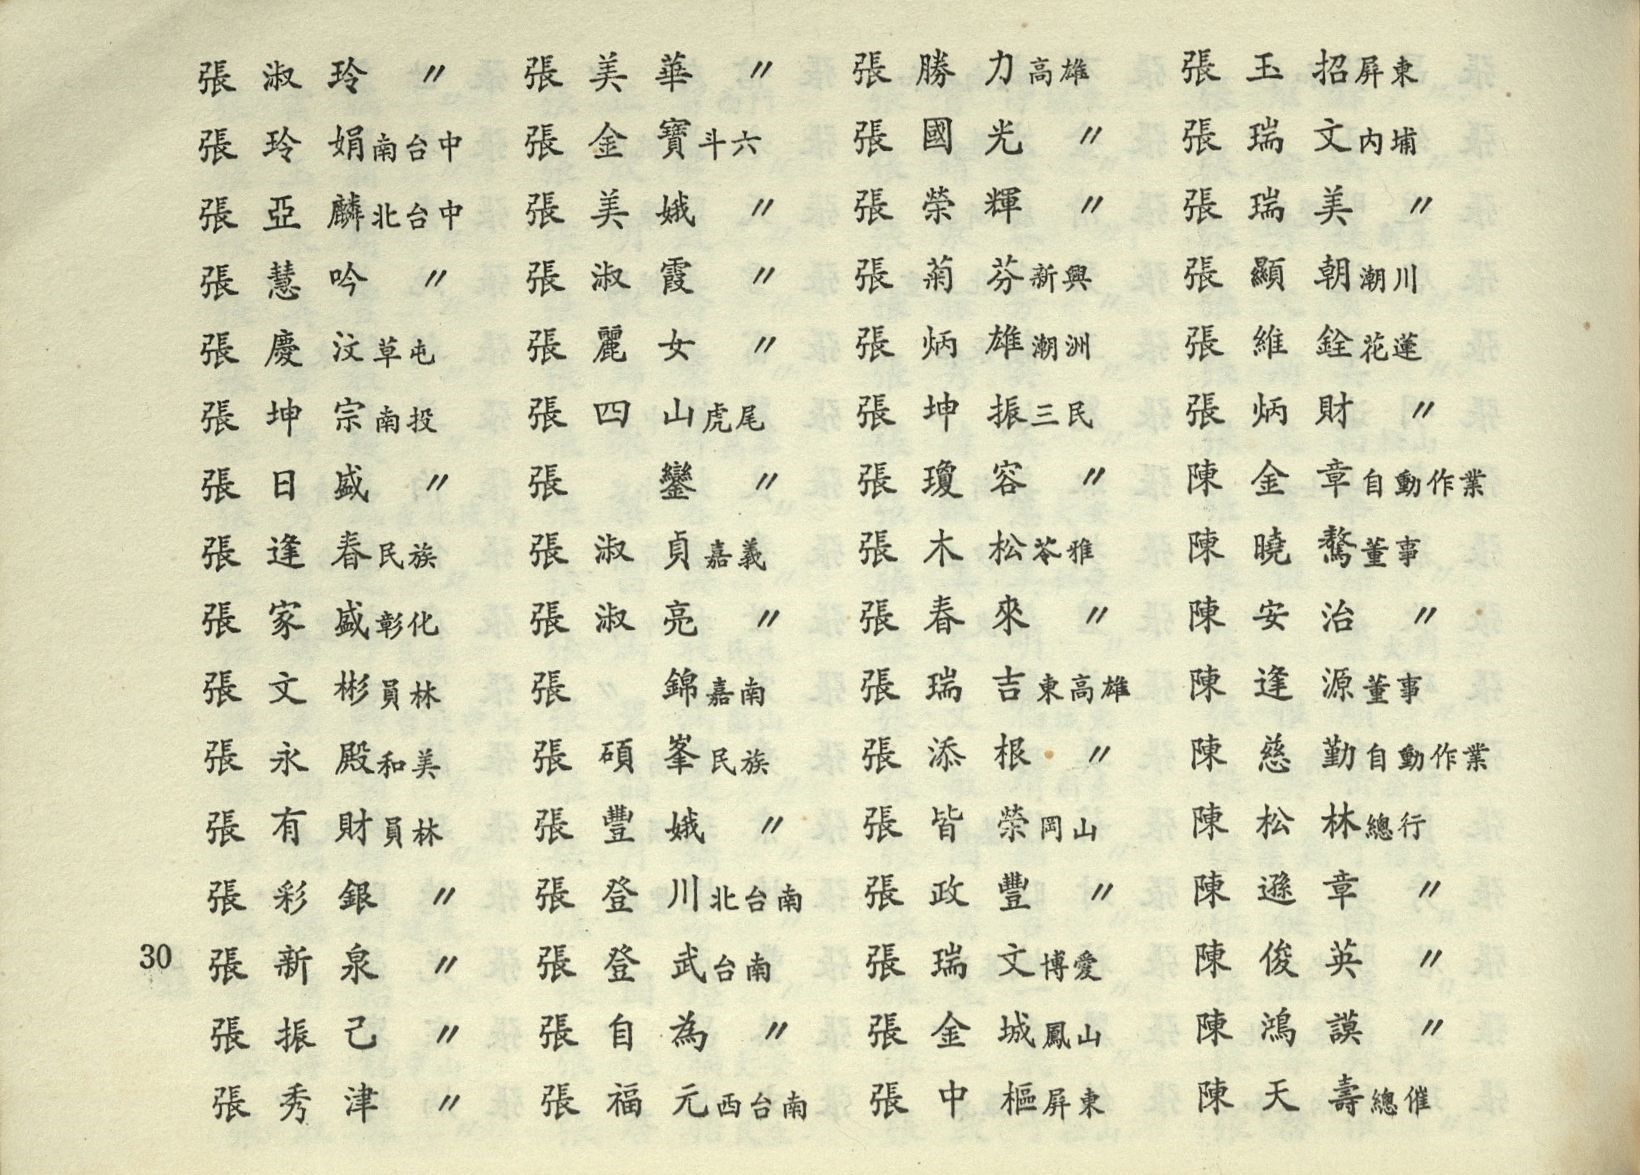 張淑玲 〃
張玲娟 南台中
張亞麟 北台中
張慧吟 〃
張慶汶 草屯
張坤宗 南投
張日盛 〃
張逢春 民族
張家盛 彰化
張文彬 員林
張永殿 和美
張有財 員林
張彩銀 〃
張新泉 〃
張振己 〃
張秀津 〃
張美華 〃
張金寶 斗六
張美娥 〃
張淑霞 〃
張麗女 〃
張四山 虎尾
張鑾 〃
張淑貞 嘉義
張淑亮 〃
張錦 嘉南
張碩峯 民族
張豐娥 〃
張登川 北台南
張登武 台南
張自為 〃
張福元 西台南
張勝力 高雄
張國光 〃
張榮輝 〃
張菊芬 新興
張炳雄 潮洲
張坤振 三民
張瓊容 〃
張木松 苓雅
張春來 〃
張瑞吉 東高雄
張添根 〃
張皆榮 岡山
張政豐 〃
張瑞文 博愛
張金城 鳳山
張中樞 屏東
張玉招 屏東
張瑞文 內埔
張瑞美 〃
張顯朝 潮川
張維銓 花蓮
張炳財 〃
陳金章 自動作業
陳曉 董事
陳安治 〃
陳逢源 董事
陳慈勤 自動作業
陳松林 總行
陳遜章 〃
陳俊英 〃
陳鴻謨 〃
陳天壽 總催
30